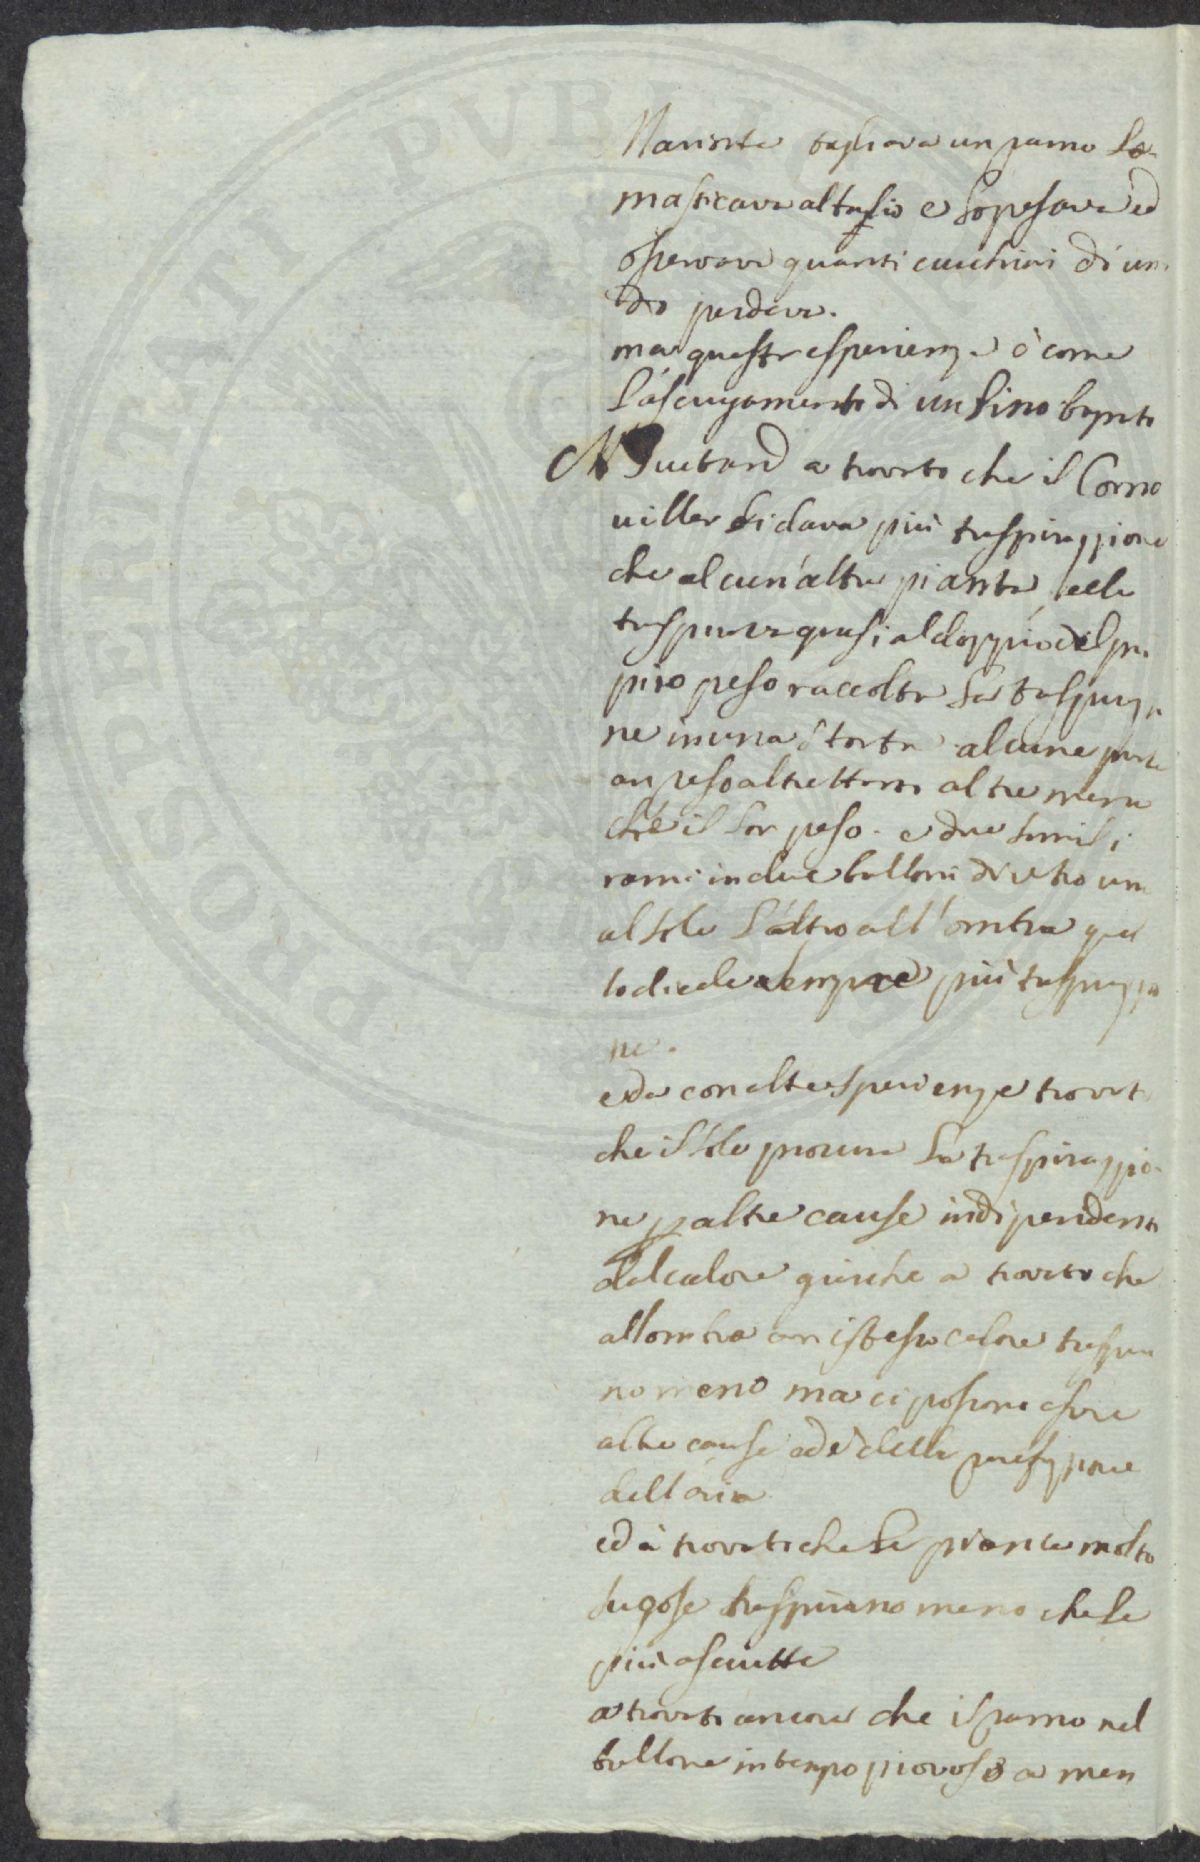 Mariotte tagliava un ramo Lo
masticava al taglio e Lo pesava ed
osservava quanti cucchiari di umi
do perdeva.
ma questa esperienza è come
L'asciugamento di un Lino bagnato
M Guetard a trovato che il Corno
uiller di dava più traspirazzione
che alcun'altra pianta, ella
traspirava quasi al doppio del pro
prio peso raccolta La traspirazio
ne in una storta alcune piante
an peso altrettanto altre meno
che il Lor peso. e due simili
rami in due balloni di vetro uno
al sole L'altro all'ombra quel
lo diede sempre più traspirazzio
ne.
ed a con altre sperienze trovato
che il sole procura La traspirazzio
ne per altre cause indipendenti
dal calore giacche a trovato che
all'ombra con istesso calore traspira
no meno ma ci possono essere
altre cause ed è della rarefazzione
dell'aria
ed à trovato che Le piante molto
sugose traspirano meno che Le
più asciutte
a trovato ancora che il ramo nel
ballone in tempo piovoso a men
PROSPERITATI PVBLICAE